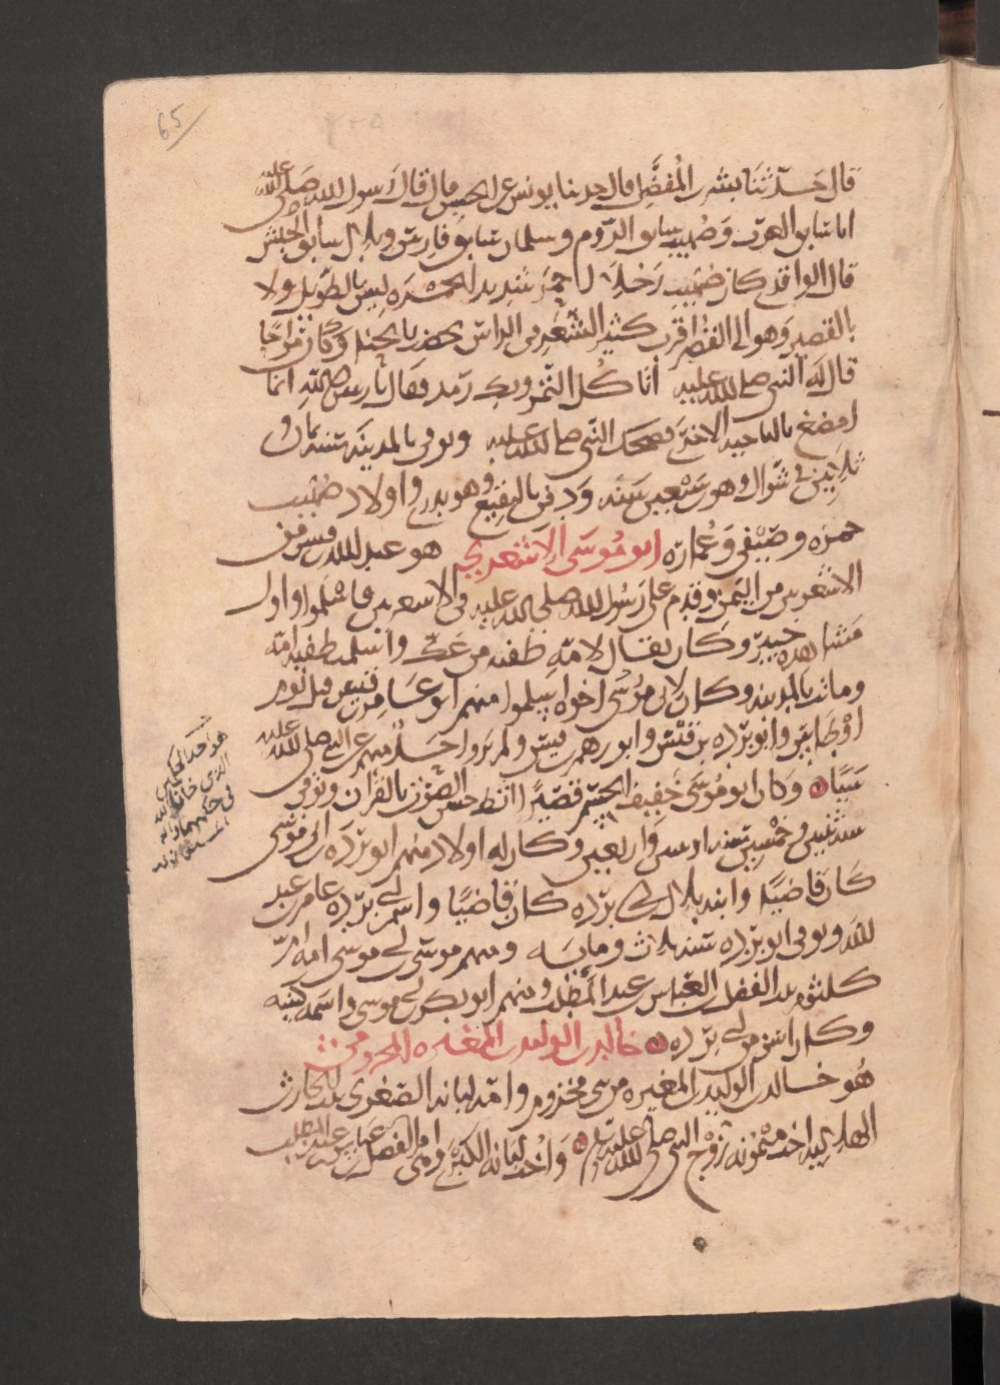 65
قال حدثنا بشر بن المفضل قال حدثنا يونس عن الحسن قال قال رسول الله صلى الله عليه
انا سابق العرب وصهيب سابق الروم وسلمان سابق فارس وبلال سابق الحبش
قال الواقدي كان صهيب رجلا احمر شديد الحمرة ليس بالطويل ولا
بالقصير وهو الى القصر اقرب كثير الشعر في الراس يخضب بالحنا وكان مزاحا
قال له النبي صلى الله عليه أتاكل التمر وبك رمد فقال يا رسول الله انما
امضغ بالناحية الاخرى فضحك النبي صلى الله عليه وتوفي بالمدينة سنة ثمان و
ثلاثين في شوال وهو بن سبعين سنة ودفن بالبقيع وهو بدري واولاد صهيب
حمزه وصيفي وعماره ابو موسى الاشعري هو عبد الله بن قيس من
الاشعرين من اليمن وقدم على رسول الله صلى الله عليه في الاشعرين فاسلموا واول
مشاهده خيبر وكان يقال لامه طفيه من عك واسلمت طفيه امه
وماتت بالمدينة وكان لابي موسى اخوة اسلموا منهم ابو عامر بن قيس قتل يوم
اوطاس وابو بردة بن قيس وابو رهم بن قيس ولم يرو احد منهم عن النبي صلى الله عليه
شيئا وكان ابو موسى خفيف الجسم قصيرا اثط حسن الصوت بالقران وتوفي
سنة اثنين وخمسين اد سن واربعين وكان له اولاد منهم ابو بردة بن ابي موسى
كان قاضيا وابنه بلال بن ابي بردة كان قاضيا واسم ابي بردة عامر بن عبد
الله وتوفي ابو بردة سنة ثلاث وماية ومنهم موسى بن ابي موسى امه ام
كلثوم بنت الفضل بن العباس بن عبد المطلب ومنهم ابو بكر بن ابي موسى واسمه كنيته
وكان اسن من ابي بردة خالد بن الوليد بن المغيرة المخزومي
هو خالد بن الوليد بن المغيره من بني مخزوم وامه لبانه الصغرى بنت الحارث
الهلالية اخت ميمونة زوج النبي صلى الله عليه وسلم واخت لبانة الكبرى وهي ام الفضل بن عباس بن عبد المطلب
هو احد الحكمين
الذي خان الله
في حكمهما